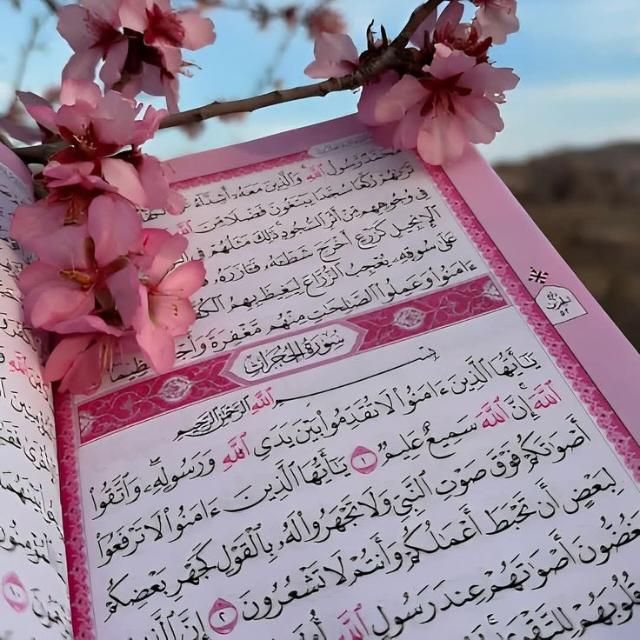 مُّحَمَّدٌ رَّسُولُ ٱللَّهِ وَٱلَّذِينَ مَعَهُۥٓ أَشِدَّآءُ
تَرَىٰهُمْ رُكَّعًا سُجَّدًا يَبْتَغُونَ فَضْلًا مِّنَ ٱللَّهِ
فِى وُجُوهِهِم مِّنْ أَثَرِ ٱلسُّجُودِ ذَٰلِكَ مَثَلُهُمْ فِى
ٱلْإِنجِيلِ كَزَرْعٍ أَخْرَجَ شَطْـَٔهُۥ فَـَٔازَرَهُۥ
عَلَىٰ سُوقِهِۦ يُعْجِبُ ٱلزُّرَّاعَ لِيَغِيظَ بِهِمُ ٱلْكُفَّارَ
ءَامَنُوا۟ وَعَمِلُوا۟ ٱلصَّٰلِحَٰتِ مِنْهُم مَّغْفِرَةً وَأَجْرًا عَظِيمًا
سُورَةُ الحُجُرَاتِ
بِسْمِ ٱللَّهِ ٱلرَّحْمَٰنِ ٱلرَّحِيمِ
يَٰٓأَيُّهَا ٱلَّذِينَ ءَامَنُوا۟ لَا تُقَدِّمُوا۟ بَيْنَ يَدَىِ ٱللَّهِ وَرَسُولِهِۦ وَٱتَّقُوا۟
ٱللَّهَ إِنَّ ٱللَّهَ سَمِيعٌ عَلِيمٌ ١ يَٰٓأَيُّهَا ٱلَّذِينَ ءَامَنُوا۟ لَا تَرْفَعُوٓا۟
أَصْوَٰتَكُمْ فَوْقَ صَوْتِ ٱلنَّبِىِّ وَلَا تَجْهَرُوا۟ لَهُۥ بِٱلْقَوْلِ كَجَهْرِ بَعْضِكُمْ
لِبَعْضٍ أَن تَحْبَطَ أَعْمَٰلُكُمْ وَأَنتُمْ لَا تَشْعُرُونَ ٢ إِنَّ ٱلَّذِينَ
يَغُضُّونَ أَصْوَٰتَهُمْ عِندَ رَسُولِ ٱللَّهِ
قُلُوبَهُمْ لِلتَّقْوَىٰ